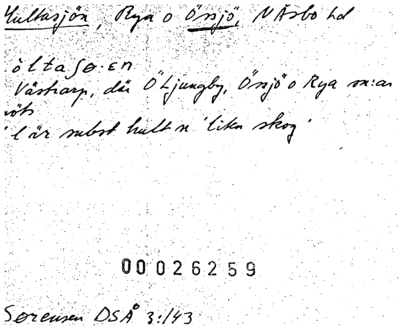 Hultasjön, Rya o Össjö, N Åsbo hd
öltaʃø.en
Västrarp, där Ö Ljungby, Össjö o Rya sn:ar
möts
l är subst hult n 'liten skog'
00026259
Sørensen DSÅ 3:143